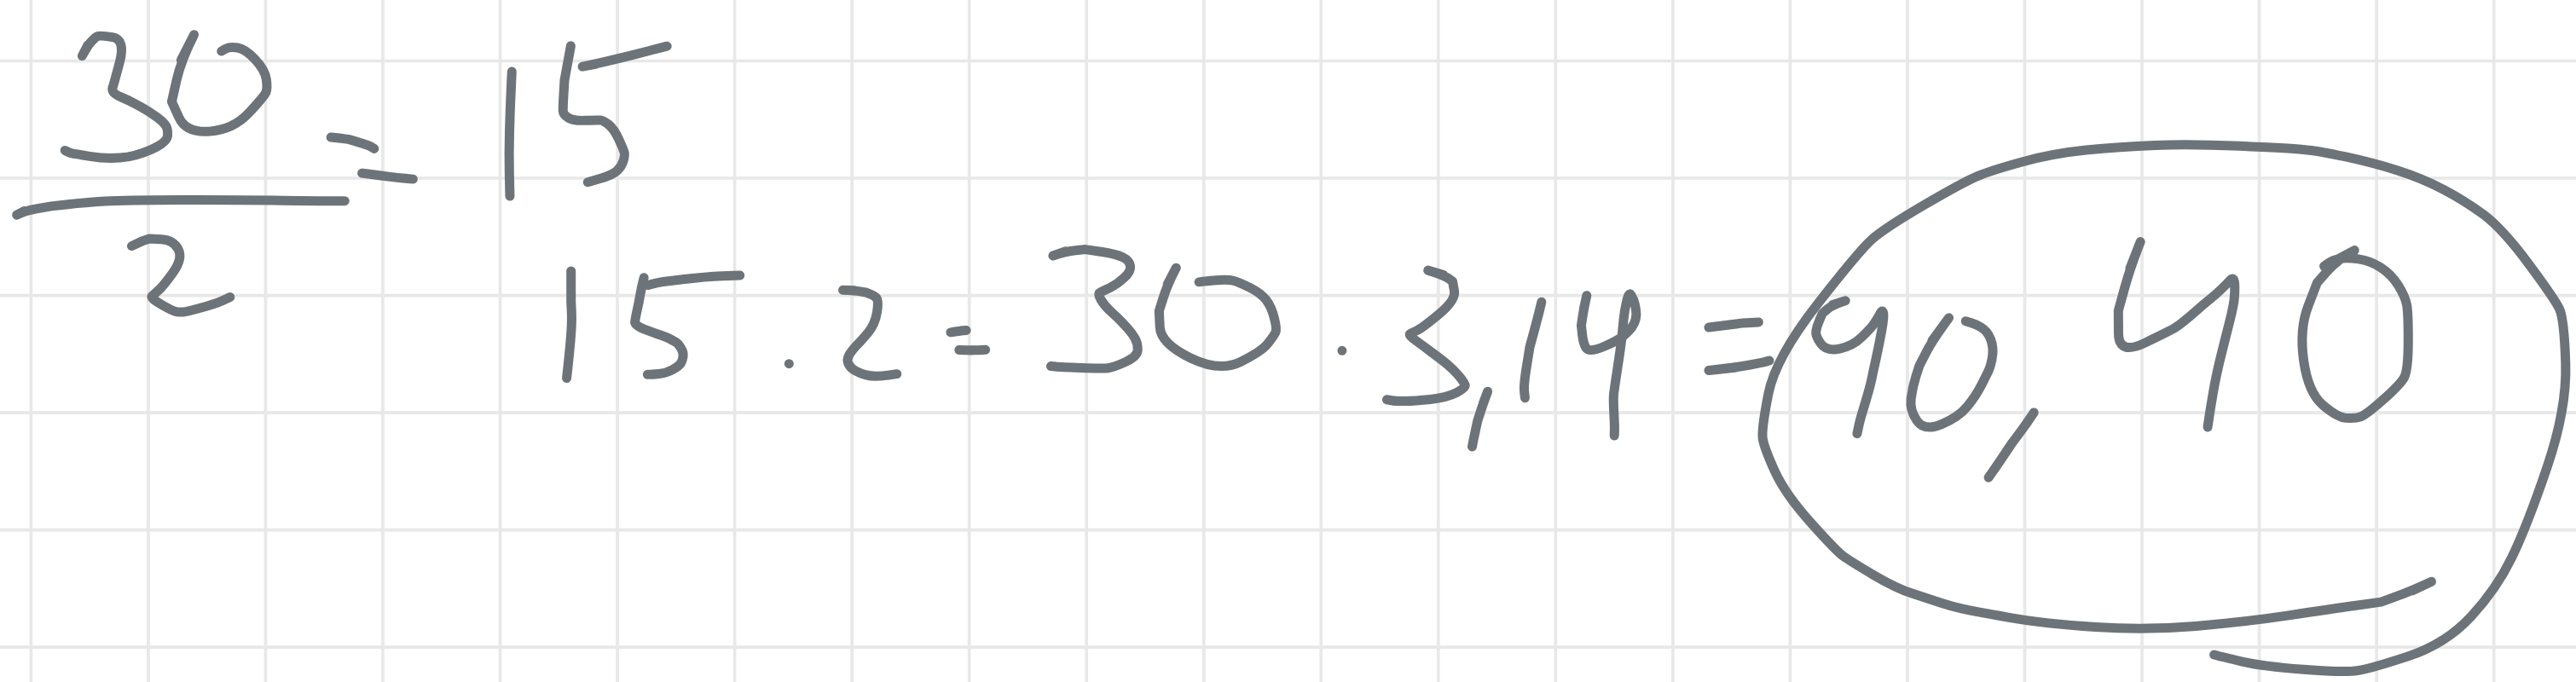 30/2 = 15
15 . 2 = 30 . 3,14 = 90,40